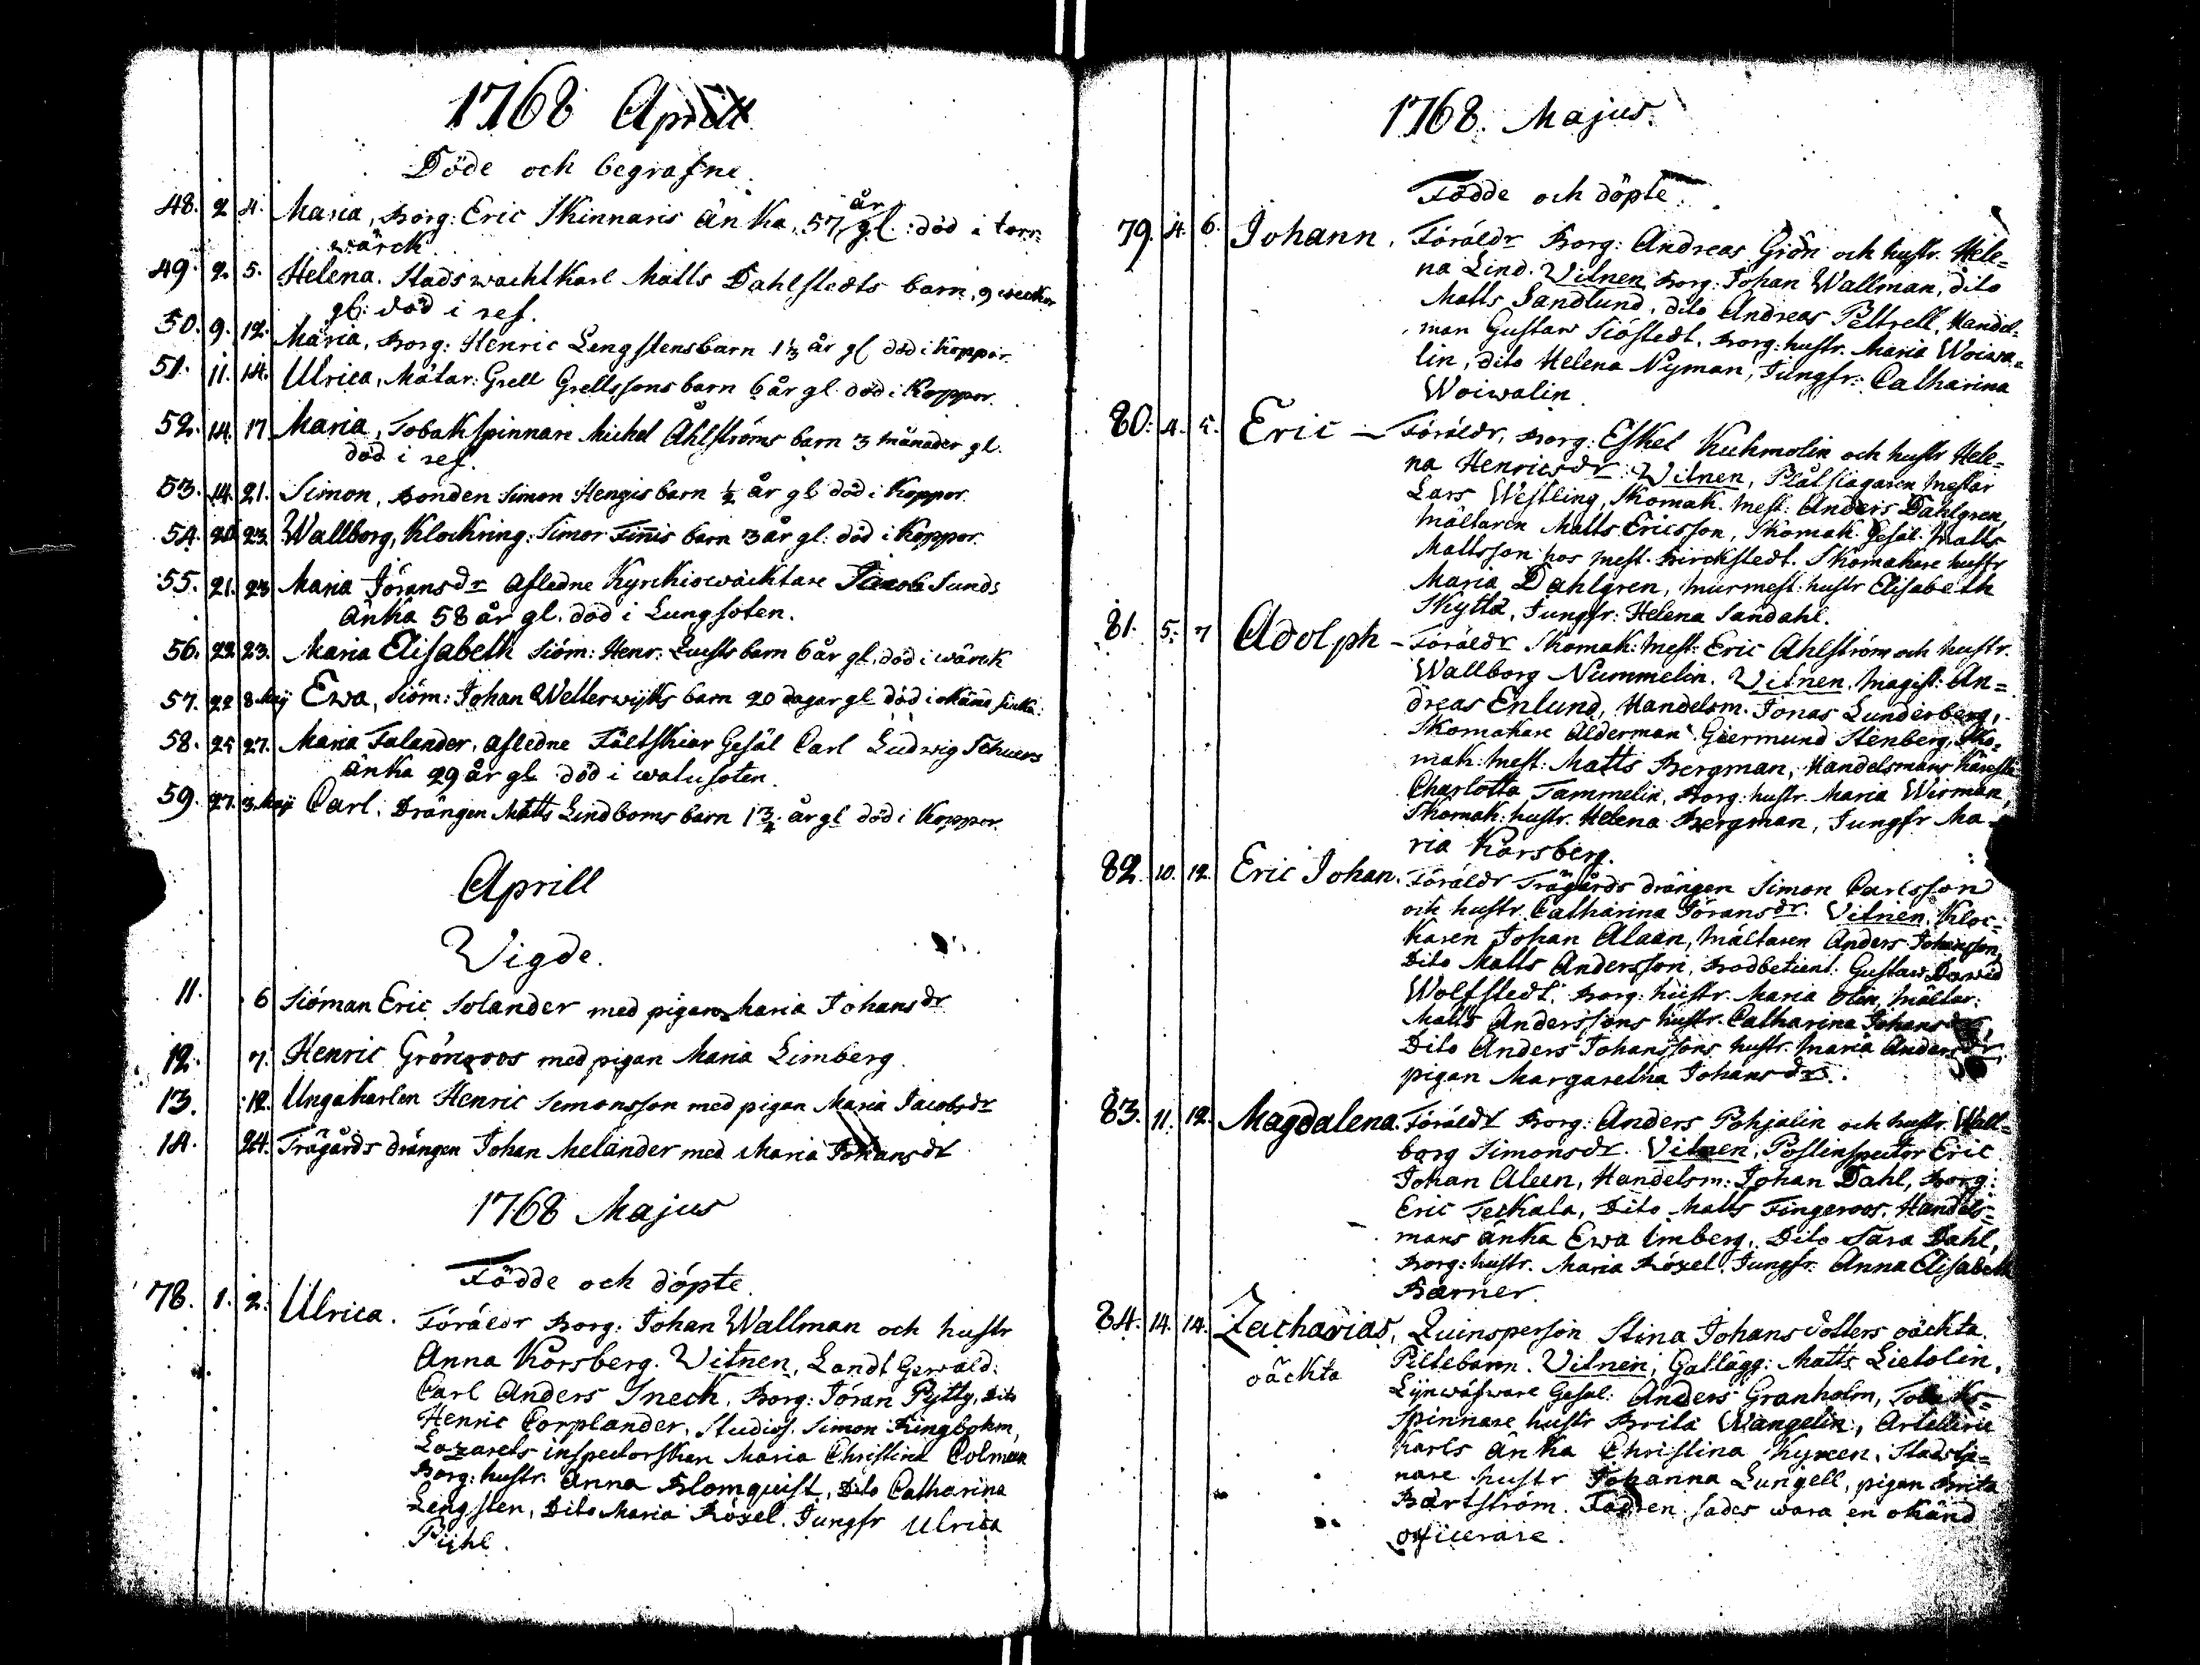 1768 Aprill
Döde och begrafne.
48. 2 4. Maria, Borg: Eric Skinnaris Änka, 57 år gl. död i torr=
wärck
49. 2. 5. Helena. Stads wachtkarl Matts Dahlstedts barn, 9 weckor
gl: död i ref.
50. 9. 12. Maria, Borg: Henric Lengstens barn 1⅓ år gl död i koppor.
51. 11. 14. Ulrica, Mätar: Grell Grellssons barn 6 år gl. död i Koppor.
52. 14. 17 Maria, Tobakspinnare Michel Åhlströms barn 3 månader gl.
död i ref.
53. 14. 21. Simon, Bonden Simon Hengis barn ½ år gl död i Koppor.
54. 20. 23. Wallborg, Klockring: Simon Finnis barn 3 år gl: död i Koppor.
55. 21. 23 Maria Jöransdr Afledne Kyrkiowäcktare Jacob Sunds
änka 58 år gl. död i Lungsoten.
56. 22 23. Maria Elisabeth Siöm: Henr: Lusts barn 6 år gl. död i wärck
57. 22 8 Maij Ewa, Siöm: Johan Wetterwijks barn 20 dagar gl död i okänd siuka:
58. 25 27. Maria Falander, afledne Fältskiär Gesäl Carl Ludwig Schuers
änka 29 år gl död i watusoten.
59. 27. 3. Maji Carl. Drängen Matts Lindboms barn 1¾ år gl död i Koppor.
Aprill
Wigde.
11. 6 Siöman Eric Solander med pigan Maria Johansdr
12. 7. Henric Gröngroos med pigan Maria Limberg
13. 12. Ungakarlen Henric Semonsson med pigan Maria Jacobsdr
14. 24. Trägårds drängen Johan Melander med Maria Johansdr
1768 Majus
Födde och döpte.
78. 1. 2. Ulrica. Föräldr Borg: Johan Wallman och hustr
Anna Korsberg. Vitnen, Landt Gewald:
Carl Anders Sneck, Borg: Jöran Pytty, Dito
Henric Corplander, Studios. Simon Ringbohm,
Lazarets inspectorskan Maria Christina Colman
Borg: hustr Anna Blomquist, Dito Catharina
Lengsten, Dito Maria Röxel. Jungfr Ulrica
Pijhl.
1768. Majus.
Födde och döpte.
79. 4. 6. Johann. Föräldr Borg: Andreas Grön och hustr. Hele=
na Lind. Vitnen Borg: Johan Wallman, dito
Matts Sandlund, dito Andreas Peltrell, Handel=
man Gustaw Siöstedt, Borg: hustr. Maria Woiwa=
lin, dito Helena Nyman, Jungfr: Catharina
Woiwalin
80. 4. 5. Eric — Föräldr, Borg: Eskel Kuhmolin och hustr Hele=
na Henricsdr. Witnen, Plåtslagaren Mestar
Lars Westling, Skomak. Mest: Anders Dahlgren,
Mältaren Matts Ericsson, Skomak. Gesäl. Matts
Mattsson hos Mest. Birckstedt. Skomakare hustr
Maria Dahlgren, Murmest: hustr Elisabeth
Skyttä, Jungfr: Helena Sandahl.
81. 5. 7 Adolph — Föräldr Skomak: Mest: Eric Ahlström och hustr.
Wallborg Nummelin. Vitnen. Magist: An=
dreas Enlund, Handelsm. Jonas Lunderberg,
Skomakare Ålderman Giermund Stenberg, Sko=
mak: Mest: Matts Bergman, Handelsmans Käresta
Charlotta Tammelin, Borg: hustr. Maria Wirman,
Skomak: hustr. Helena Bergman, Jungfr Ma=
ria Korsberg.
82. 10. 12. Eric Johan. Föräldr Trägårds drängen Simon Carlsson
och hustr. Catharina Jöransdr. Vitnen. Kloc=
karen Johan Alaan, Mältaren Anders Johansson,
Dito Matts Andersson, Bodbetient: Gustaw David
Wolfstedt. Borg: hustr. Maria Olin, Mältar:
Matts Anderssons hustr. Catharina Johansdr,
Dito Anders Johanssons hustr. Maria Andersdr
pigan Margaretha Johansdr.
83. 11. 12. Magdalena. Föräldr Borg: Anders Pohjalin och hustr. Wall=
borg Simonsdr. Vitnen, Postinspector Eric
Johan Aleen, Handelsm: Johan Dahl, Borg:
Eric Teckala, Dito Matts Fingeroos. Handels=
mans änka Ewa Imberg, Dito Sara Dahl,
Borg: hustr. Maria Röxel. Jungfr: Anna Elisabeth
Bærner.
84. 14. 14. Zacharias, Quinsperson Stina Johansdotters oäckta
oäckta
Piltebarn. Vitnen, Gallägg: Matts Lietolin,
Lijnwäfware Gesäl: Anders Granholm, Tobaks=
spinnare hustr Brita Wangelin, Artelleri
karls änka Christina Kyreen, Stadstje=
nare hustr Johanna Lungell, pigan Brita
Bartström. Fadren sades wara en okänd
officerare.